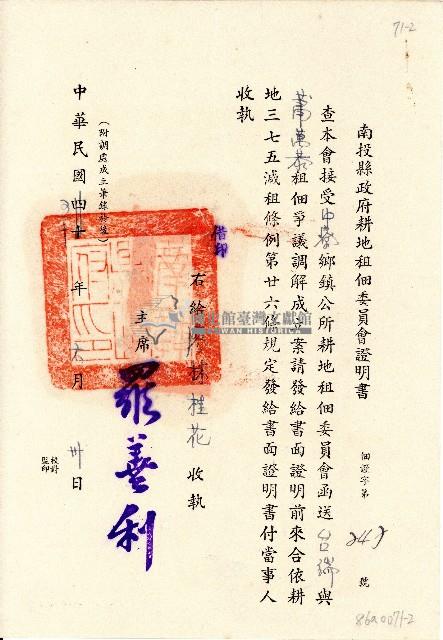 71-2
南投縣政府耕地租佃委員會證明書
佃證字第 242 號
查本會接受中寮鄉鎮公所耕地租佃委員會函送 台瑞與
蕭萬恭租佃爭議調解成立案請發給書面證明前來合依耕
地三七五減租條例第廿六條規定發給書面證明書付當事人
收執
借印
右給 林桂花 收執
主席 羅善利
(附調處成立筆錄於後)
中華民國四十 年 六月 卅日
校對
監印
國史館臺灣文獻館
TAIWAN HISTORICA
86a0071-2